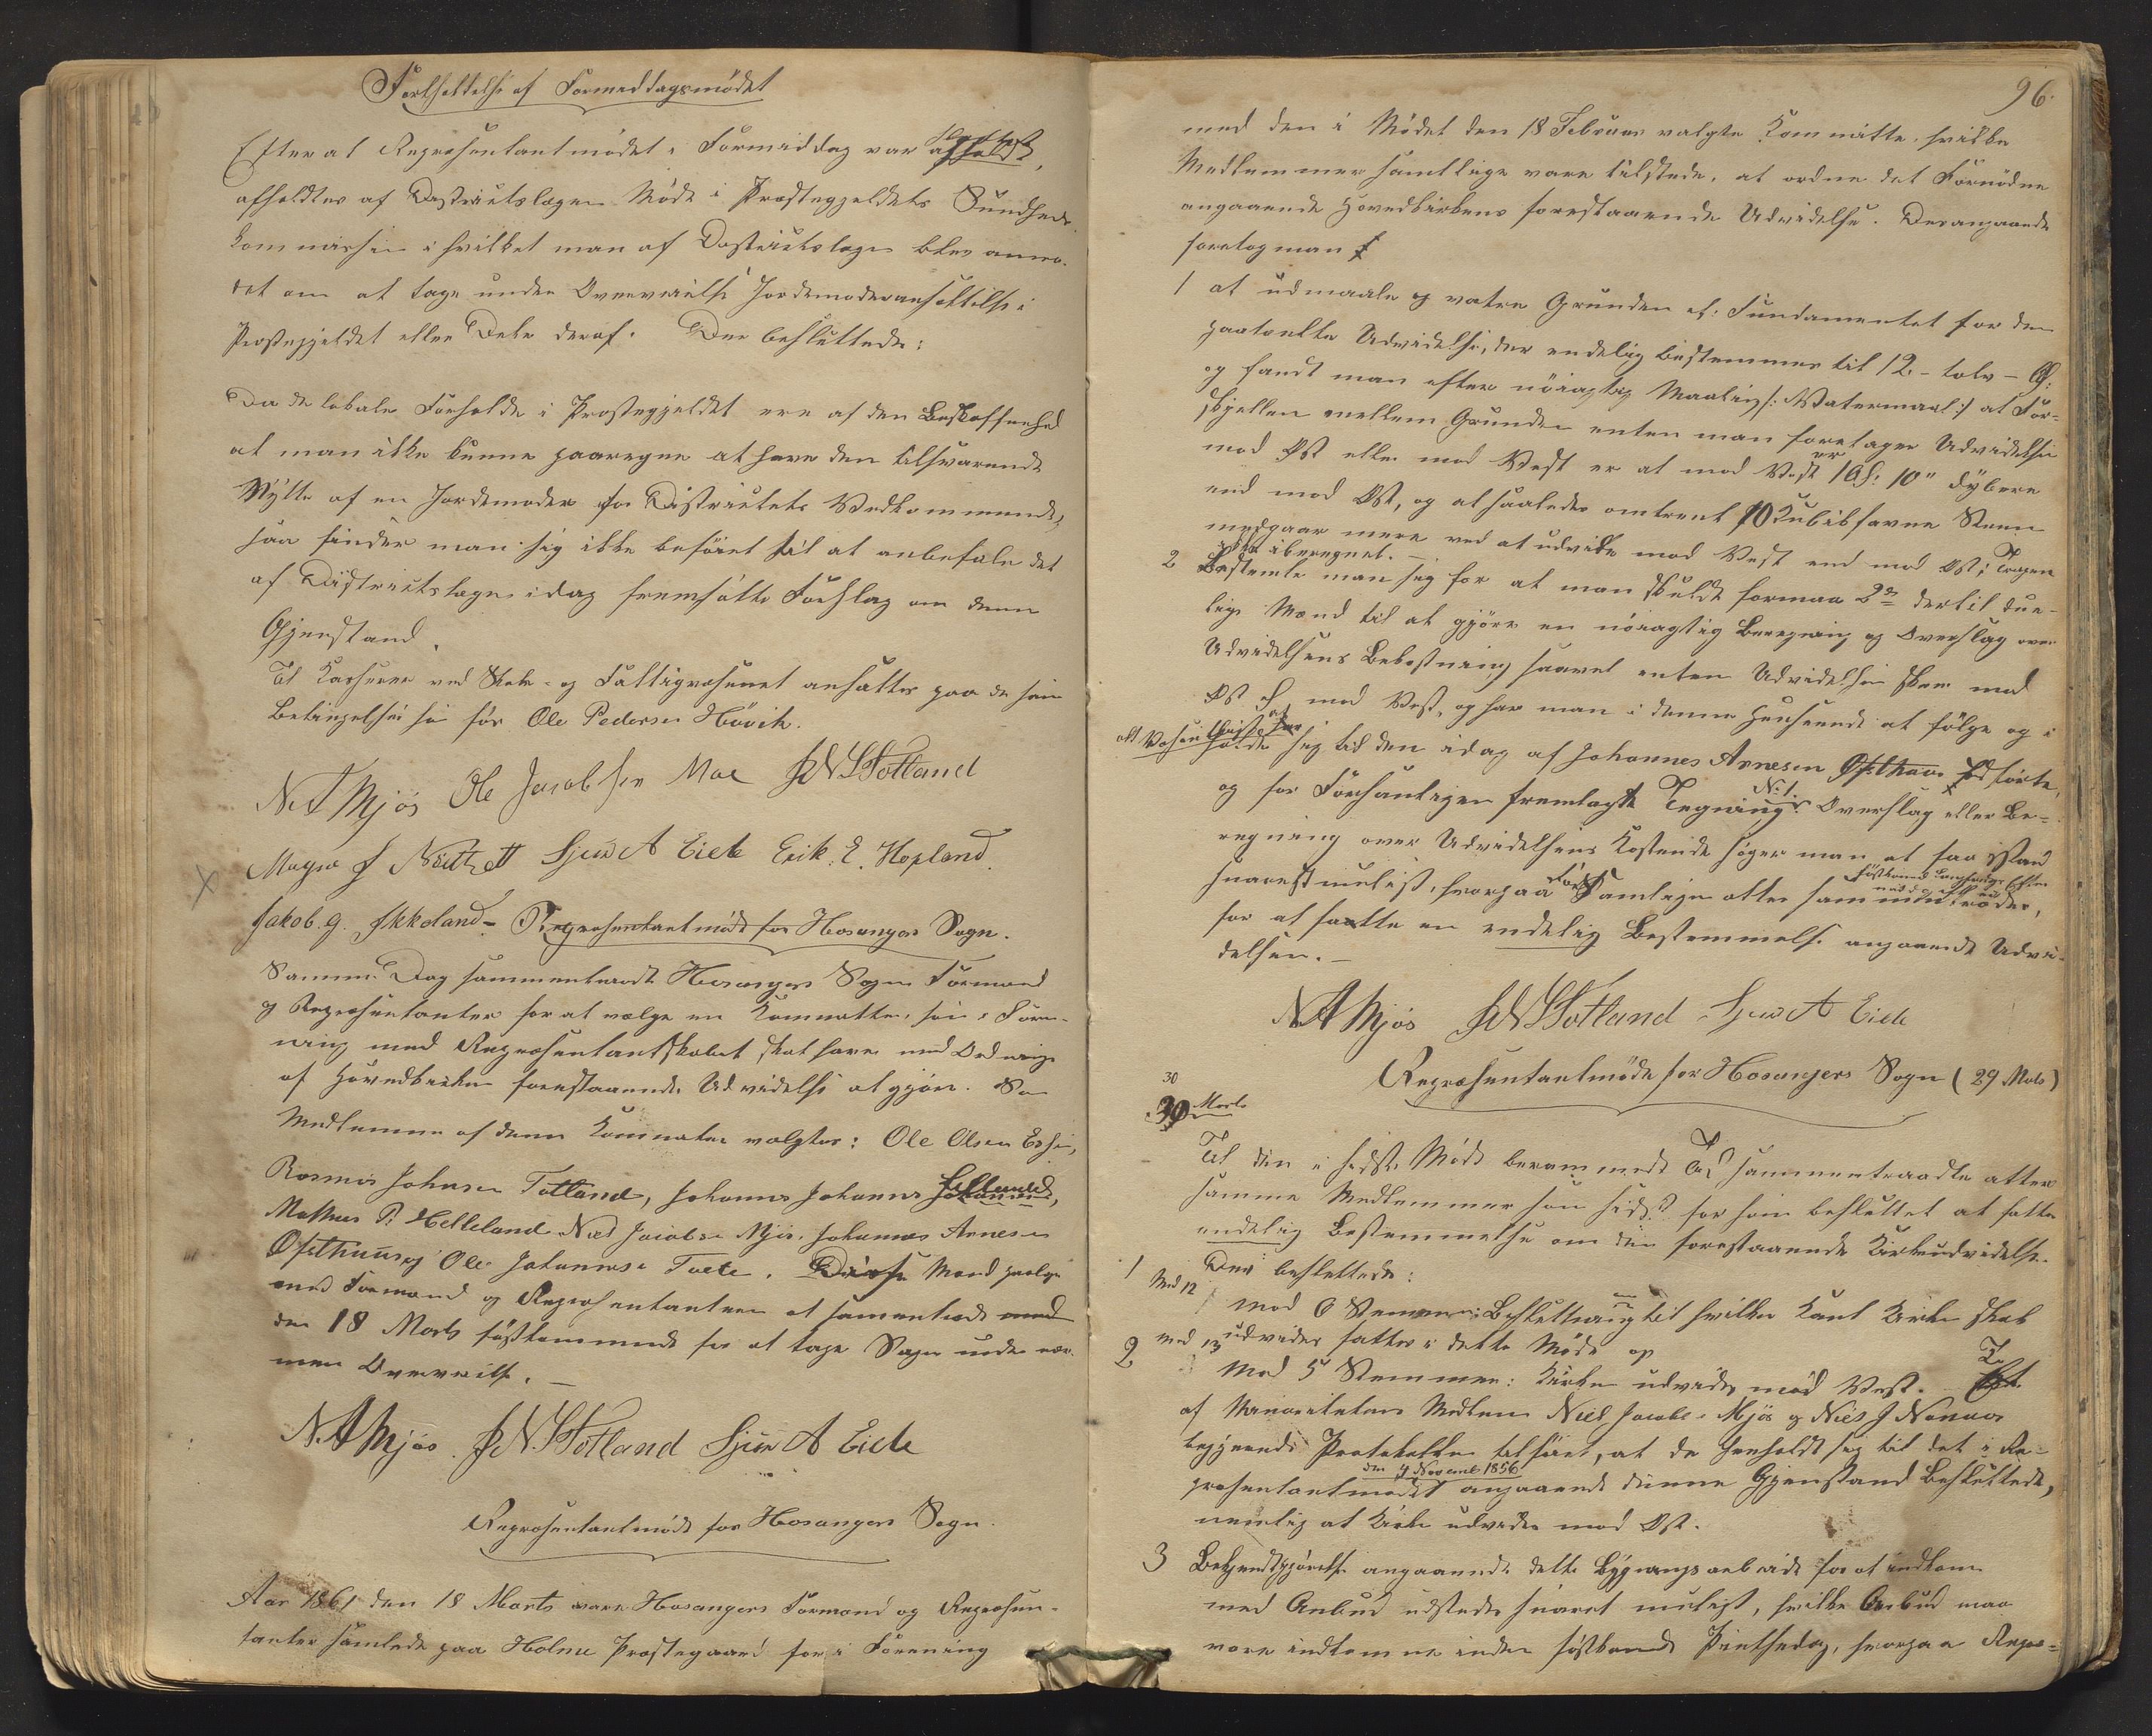 Fortsættelse af Formiddagsmödet
Efter at Repræsentantmödet i Formiddag var
afholdtes af Districtslægen Möde i Præstegjeldets Sundheds
kommission i hvilket man af Districtslægen blev anmo-
det om at tage under Overveielse Jordemoderansættelse i
Præstegjeldet eller Dele deraf. Der besluttedes:
Da de lokale Forholde i Præstegjeldet ere af den Beskaffenhed
at man ikke kunne paaregne at have den tilsvarende
Nytte af en Jordemoder for Districtets Vedkommende,
saa finder man sig ikke beföiet til at anbefale det
af Districtslægen idag fremsatte Forslag om denne
Gjenstand.
Til Kasserer ved Skole- og Fattigvæsenet ansattes paa de samme
Betingelser som för Ole Pedersen Hövik.
N A Mjös Ole Jacobsen Moe JN Sotland
Magne J Sjur A Eide Erik. E. Hopland
Jakob. G. - Repræsentantmöde for Hosangers Sogn.
Samme Dag sammentraadte Hosangers Sogns Formænd
og Repræsentanter for at vælge en Kommitte, som i Fore-
ning med Repræsentantskabet skal have med Ordningen
af Hovedkirkens forestaaende Udvidelse at gjöre. Som
Medlemmer af denne Kommitee valgtes: Ole Olsen
Rasmus Johnsen Totland, Johannes Johannes
Mathias P. Helleland Nils Jacobsen Mjös, Johannes Arnesen
Ofsthuus og Ole Johannesen Tvete. Disse Mænd paalægges
med Formænd og Repræsentanterne at sammentræde
den 18 Marts förstkommende for at tage Sagen under nær-
mere Overveielse.
N. A Mjös. JN. Sotland Sjur A Eide
Repræsentantmöde for Hosangers Sogn.
Aar 1861 den 18 Marts vare Hosangers Formænd og Repræsen-
tanter samlede paa Holme Præstegaard for i Forening
96.
med den i Mödet den 18 Februar valgte Kommitte, hvilke
Medlemmer samtlige vare tilstede, at ordne det Fornödne
angaaende Hovedkirkens forestaaende Udvidelse. Desangaaende
foretog man
1 at udmaale og vatre Grunden ell: Fundamentet for den
paatænkte Udvidelse, der endelig bestemmes til 12 - tolv - Al:
og fandt man efter nöiagtig Maaling /: Vatermaal :/ at For-
skjellen mellem Grunden enten man foretager Udvidelsen
mod Öst eller mod Vest er at mod Vest er 1 Al: 10" dybere
end mod Öst, og at saaledes omtrent 10 Kubikfavne Steen
medgaar mere ved at udvide mod Vest end mod Öst; Trappen
ikke iberegnet. -
2 Bestemte man sig for at man skulde formaa 2de dertil due-
lige Mænd til at gjöre en nöiagtig Beregning og Overslag over
Udvidelsens Bekostning saavel enten Udvidelsen skeer mod
Öst ell mod Vest, og har man i denne Henseende at fölge og i
alt Væsentligt at holde sig til den idag af Johannes Arnesen Ofsthuus udförte,
og for Forsamlingen fremlagte Tegning No 1. Overslag eller Be-
regning over Udvidelsens Kostende söger man at faa istand
snarest muligst, hvorpaa Forsamlingen atter sammentræder,
for at fatte en endelig Bestemmelse angaaende Udvi-
delsen. -
N A Mjös JN Sotland Sjur A Eide
Repræsentantmöde for Hosangers Sogn (29 Mots)
30
30 Marts
Til den i sidste Möde berammede Tid sammentraadte atter
samme Medlemmer som sidst for som besluttet at fatte
endelig Bestemmelse om den forestaaende Kirkeudvidelse.
Der besluttedes:
1 Med 12 mod 6 Stemmer: Beslutning om til hvilken Kant Kirken skal
udvides fattes i dette Möde og
2 Med 13 mod 5 Stemmer: Kirken udvides mod Vest. To
af Minoritetens Medlemmer Niels Jacobsen Mjös og Niels J
begjærende Protokollen tilfört, at de henholdt sig til det i Re-
præsentantmödet den 4 Novemb 1856 angaaende denne Gjenstand Besluttede,
nemlig at Kirken udvides mod Öst.
3 Bekjendtgjörelse angaaende dette Bygningsarbeide for at indkomme
med Anbud udstedes snarest muligst, hvilke Anbud maa
være indkomne inden förstkommende Pintsedag, hvorpaa Repræ-